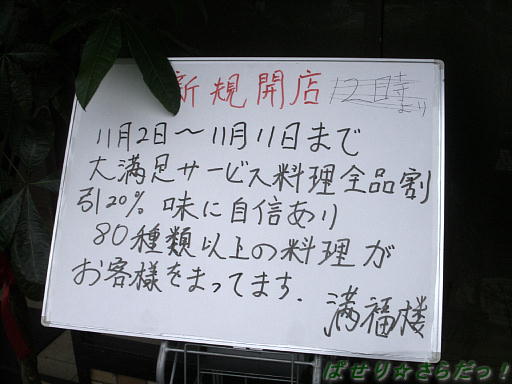 新規開店 12時より
11月2日～11月11日まで
大満足サービス料理全品割
引20% 味に自信あり
80種類以上の料理が
お客様をまってます.
満福楼
ぱせり☆さらだっ!